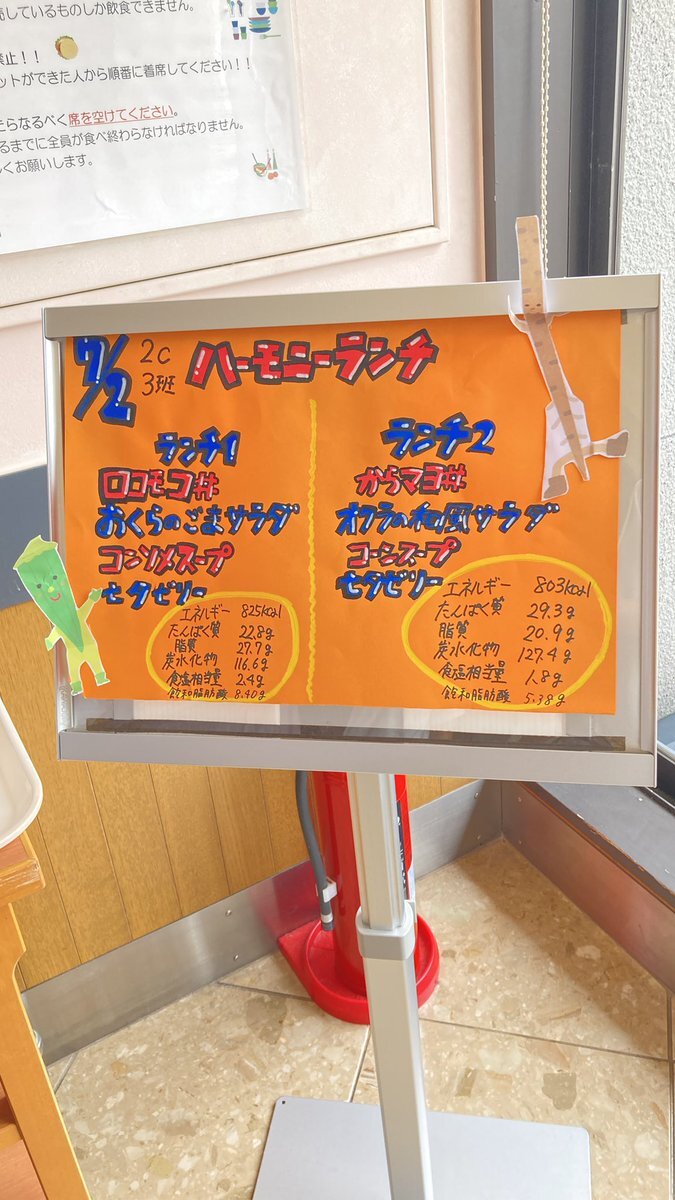 しているものしか飲食できません。
禁止！！
ットができた人から順番に着席してください！！
たらなるべく席を空けてください。
るまでに全員が食べ終わらなければなりません。
しくお願いします。
7/2
2C
3班
ハーモニーランチ
ランチ1
ロコモコ丼
おくらのごまサラダ
コンソメスープ
七夕ゼリー
エネルギー 825kcal
たんぱく質 22.8g
脂質 27.7g
炭水化物 116.6g
食塩相当量 2.4g
飽和脂肪酸 8.40g
ランチ2
からマヨ丼
オクラの和風サラダ
コーンスープ
七夕ゼリー
エネルギー 803kcal
たんぱく質 29.3g
脂質 20.9g
炭水化物 127.4g
食塩相当量 1.8g
飽和脂肪酸 5.38g